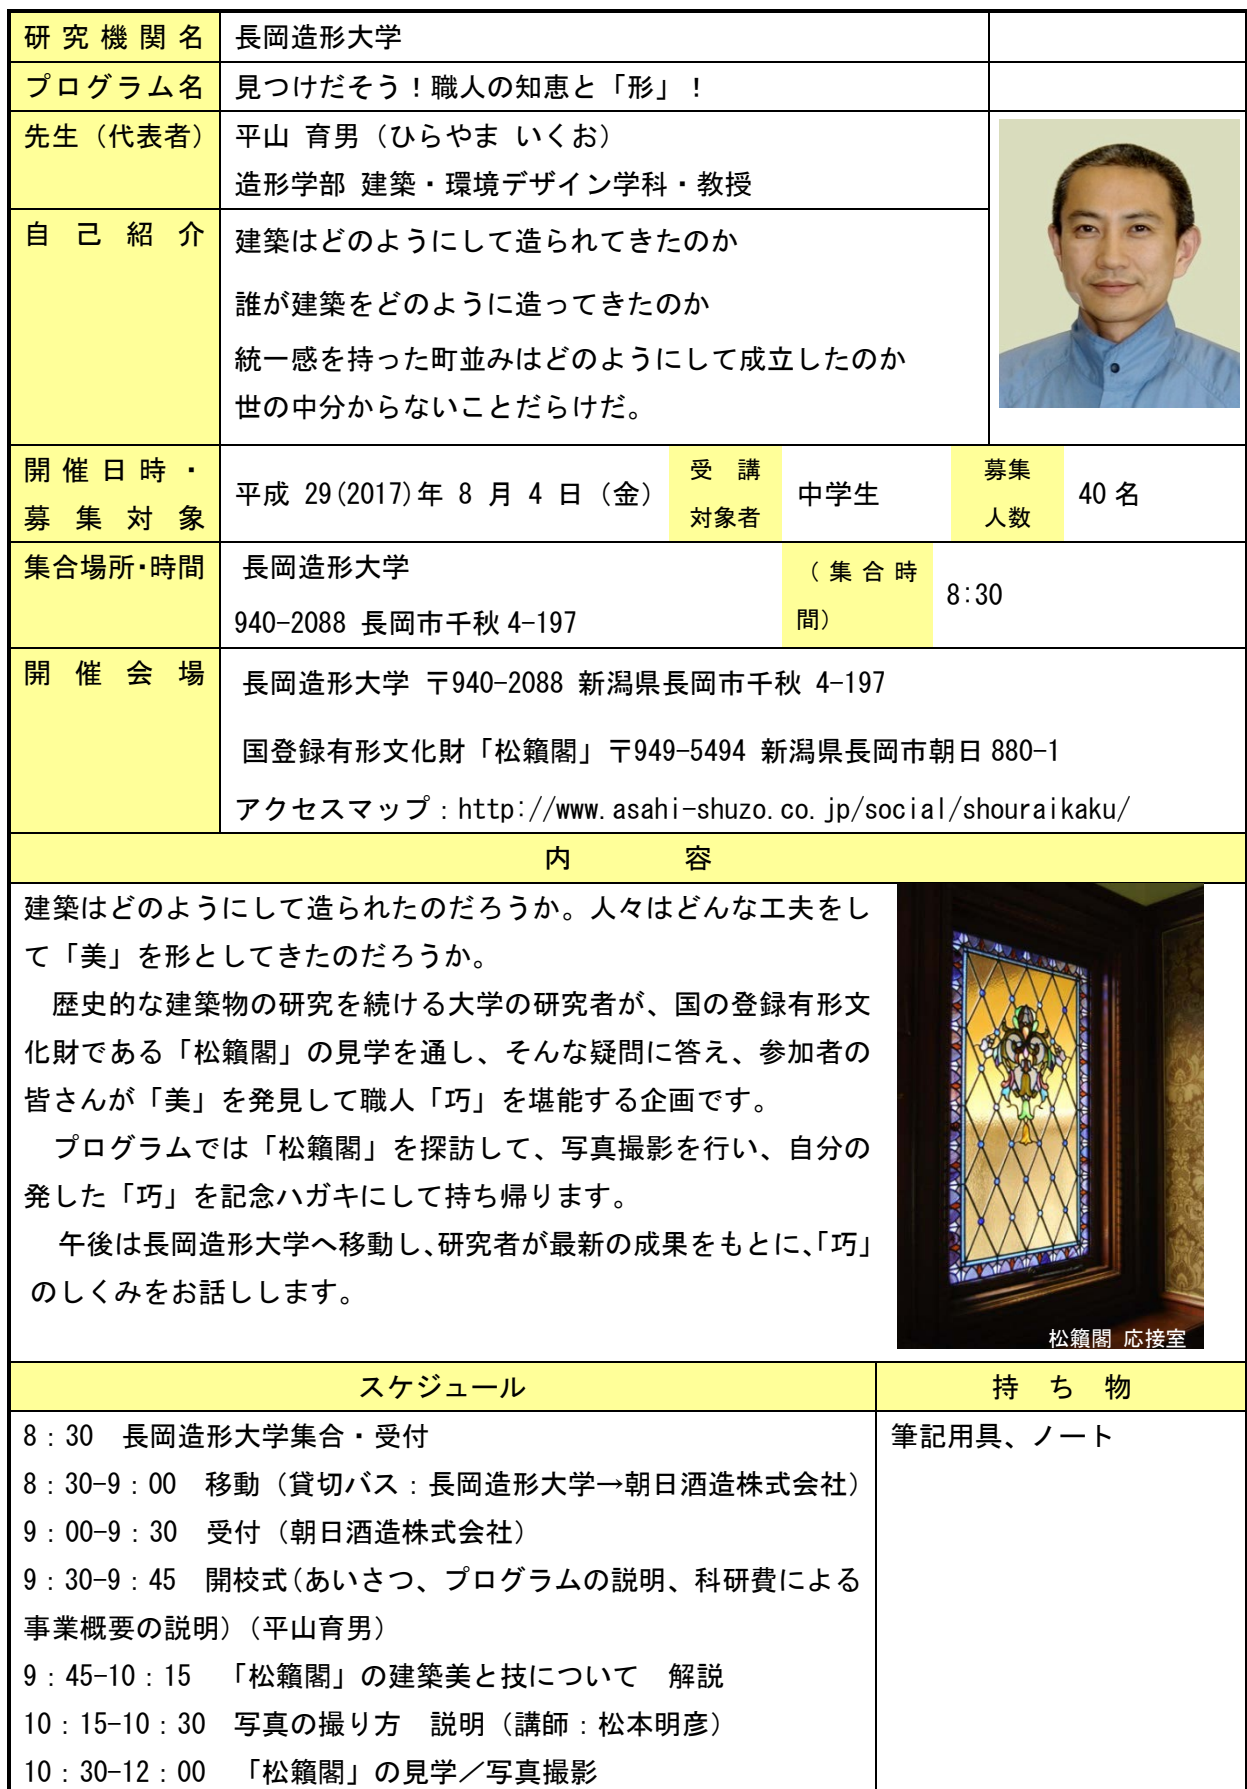 研究機関名 長岡造形大学
プログラム名 見つけだそう！職人の知恵と「形」！
先生（代表者） 平山 育男（ひらやま いくお）
造形学部 建築・環境デザイン学科・教授
自己紹介 建築はどのようにして造られてきたのか
誰が建築をどのように造ってきたのか
統一感を持った町並みはどのようにして成立したのか
世の中分からないことだらけだ。
開催日時・
募集対象
平成 29(2017)年 8 月 4 日（金）
受講
対象者
中学生
募集
人数
40 名
集合場所・時間 長岡造形大学
940-2088 長岡市千秋 4-197
（集合時
間）
8:30
開催会場 長岡造形大学 〒940-2088 新潟県長岡市千秋 4-197
国登録有形文化財「松籟閣」〒949-5494 新潟県長岡市朝日 880-1
アクセスマップ：http://www.asahi-shuzo.co.jp/social/shouraikaku/
内 容
建築はどのようにして造られたのだろうか。人々はどんな工夫をし
て「美」を形としてきたのだろうか。
歴史的な建築物の研究を続ける大学の研究者が、国の登録有形文
化財である「松籟閣」の見学を通し、そんな疑問に答え、参加者の
皆さんが「美」を発見して職人「巧」を堪能する企画です。
プログラムでは「松籟閣」を探訪して、写真撮影を行い、自分の
発した「巧」を記念ハガキにして持ち帰ります。
午後は長岡造形大学へ移動し、研究者が最新の成果をもとに、「巧」
のしくみをお話しします。
松籟閣 応接室
スケジュール
8：30 長岡造形大学集合・受付
8：30-9：00 移動（貸切バス：長岡造形大学→朝日酒造株式会社）
9：00-9：30 受付（朝日酒造株式会社）
9：30-9：45 開校式（あいさつ、プログラムの説明、科研費による
事業概要の説明）（平山育男）
9：45-10：15 「松籟閣」の建築美と技について 解説
10：15-10：30 写真の撮り方 説明（講師：松本明彦）
10：30-12：00 「松籟閣」の見学／写真撮影
持ち物
筆記用具、ノート